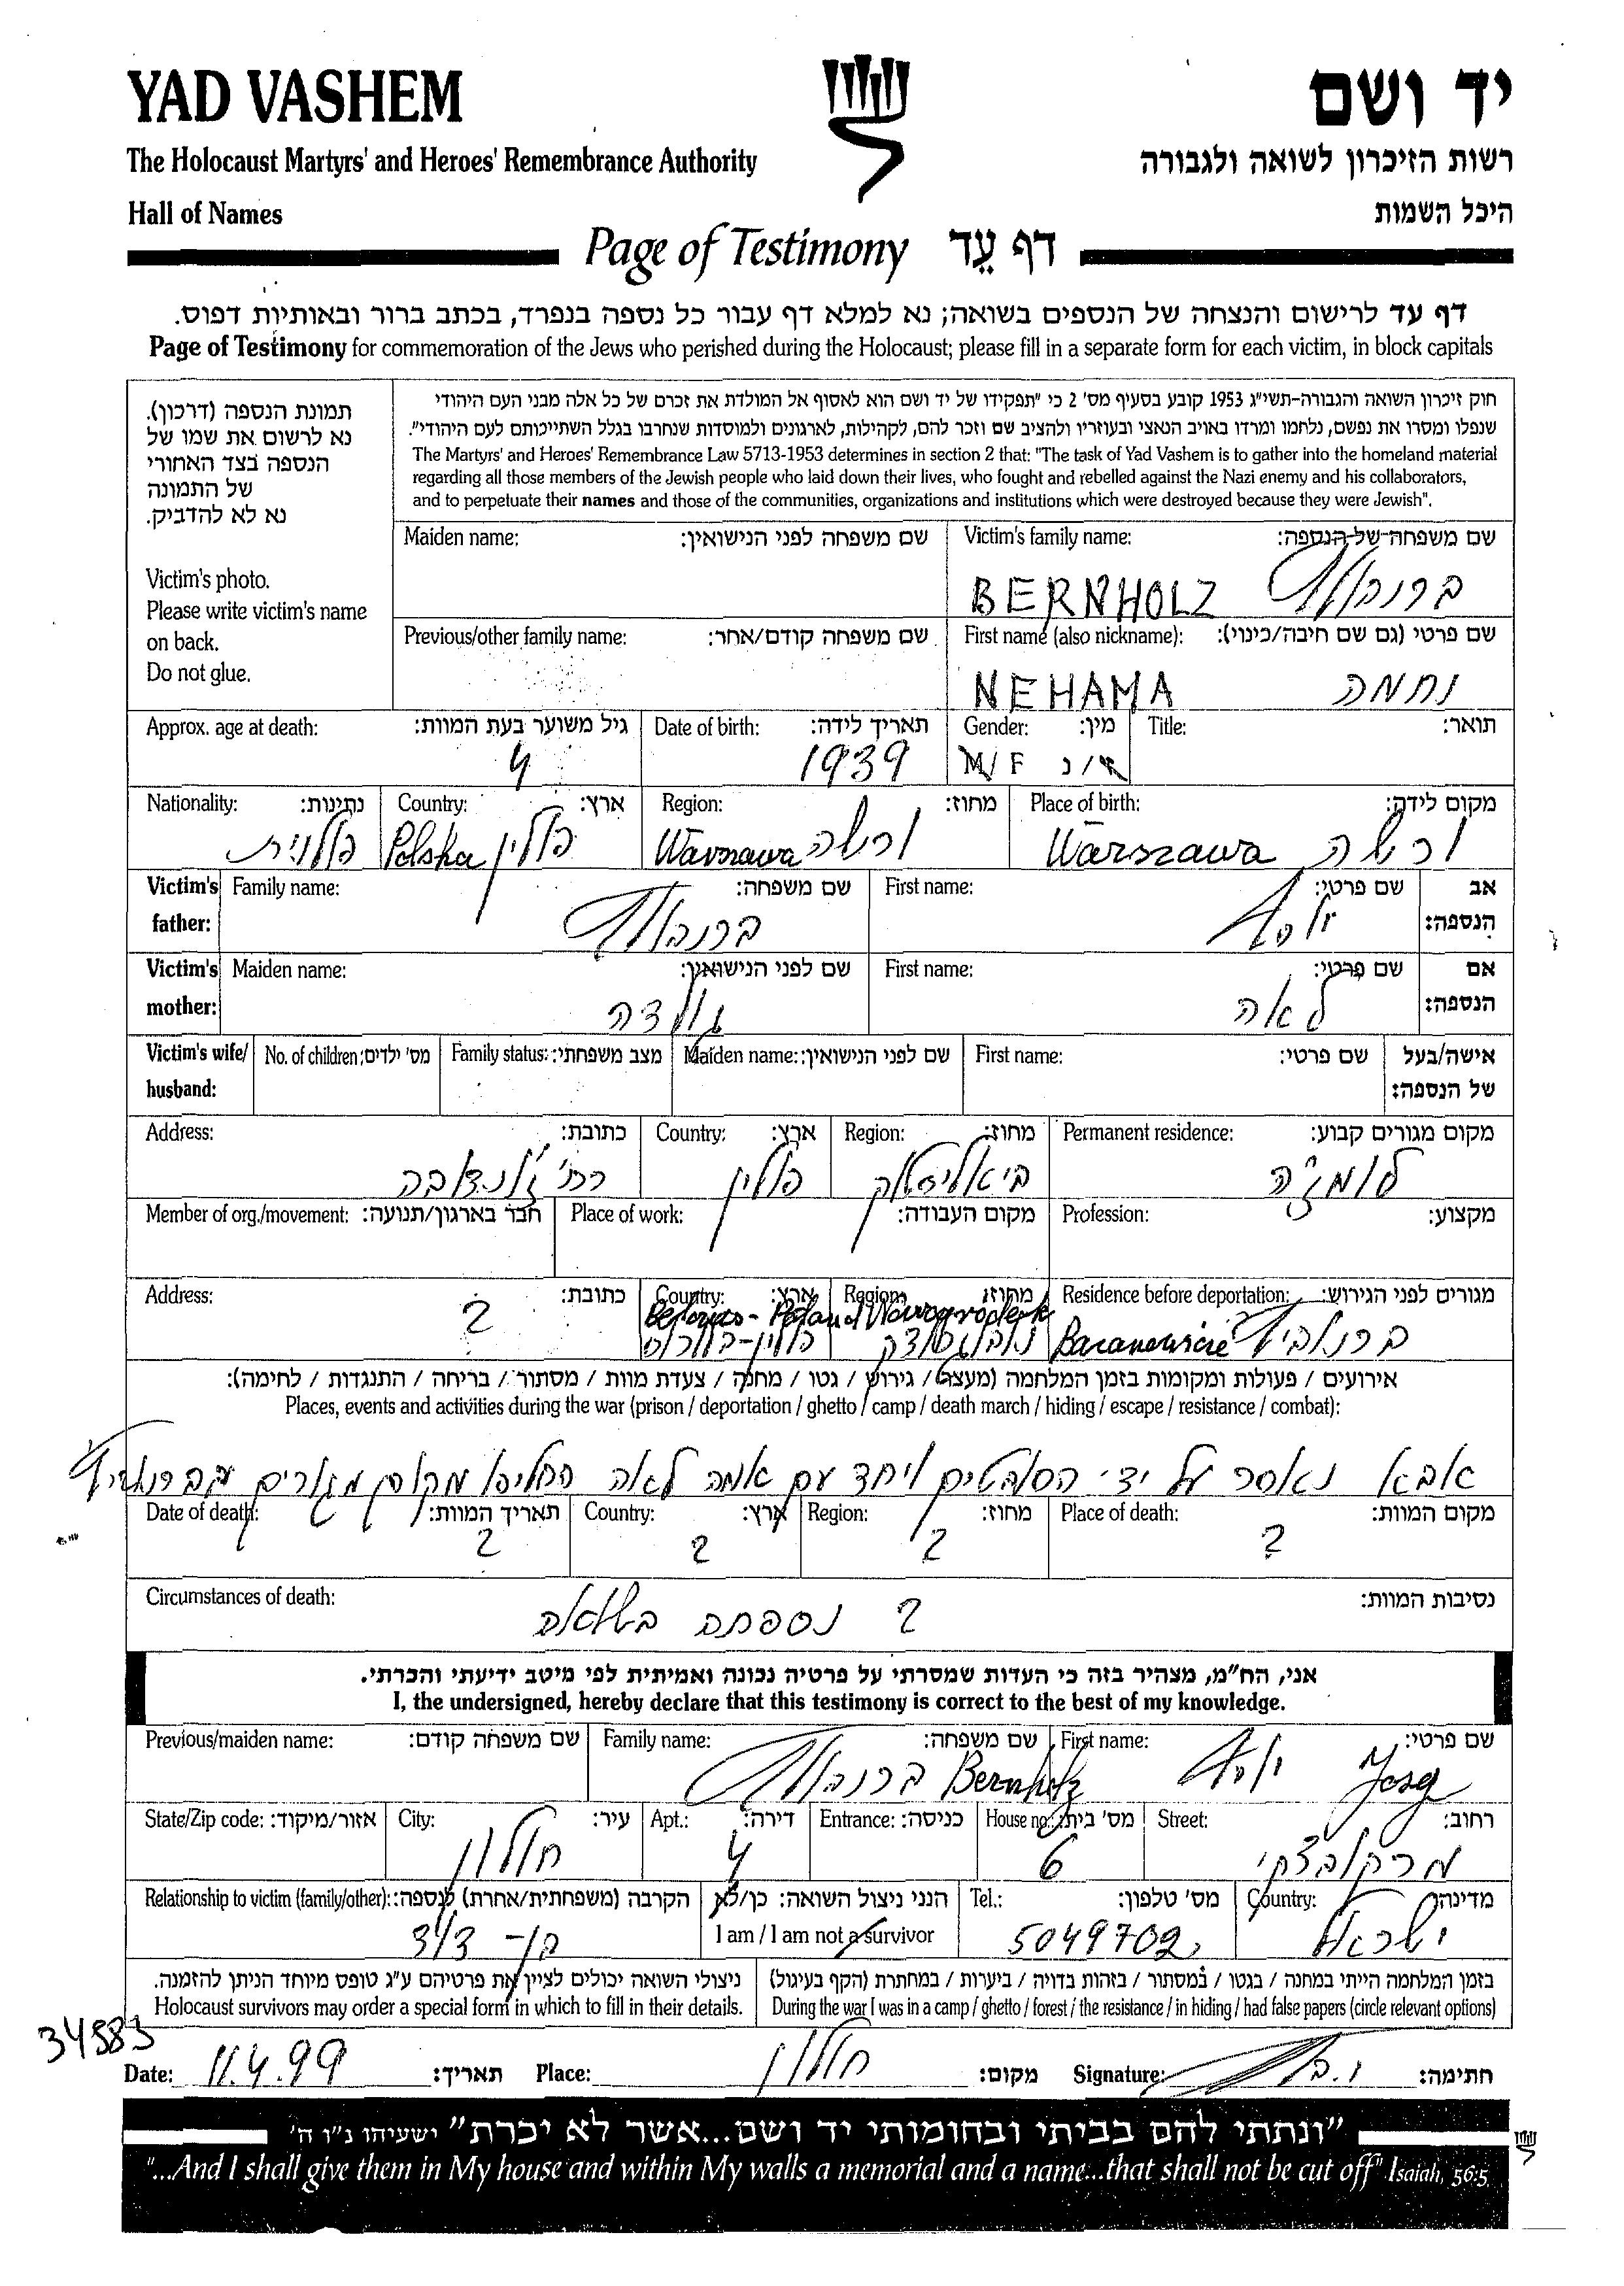 YAD VASHEM
יד ושם
The Holocaust Martyrs' and Heroes' Remembrance Authority
רשות הזיכרון לשואה ולגבורה
Hall of Names
היכל השמות
Page of Testimony דף עֵד
דף עד לרישום והנצחה של הנספים בשואה; נא למלא דף עבור כל נספה בנפרד, בכתב ברור ובאותיות דפוס.
Page of Testimony for commemoration of the Jews who perished during the Holocaust; please fill in a separate form for each victim, in block capitals
תמונת הנספה (דרכון).
נא לרשום את שמו של
הנספה בצד האחורי
של התמונה
נא לא להדביק.
Victim's photo.
Please write victim's name
on back.
Do not glue.
חוק זיכרון השואה והגבורה-תשי"ג 1953 קובע בסעיף מס' 2 כי "תפקידו של יד ושם הוא לאסוף אל המולדת את זכרם של כל אלה מבני העם היהודי
שנפלו ומסרו את נפשם, נלחמו ומרדו באויב הנאצי ובעוזריו ולהציב שם וזכר להם, לקהילות, לארגונים ולמוסדות שנחרבו בגלל השתייכותם לעם היהודי".
The Martyrs' and Heroes' Remembrance Law 5713-1953 determines in section 2 that: "The task of Yad Vashem is to gather into the homeland material
regarding all those members of the Jewish people who laid down their lives, who fought and rebelled against the Nazi enemy and his collaborators,
and to perpetuate their names and those of the communities, organizations and institutions which were destroyed because they were Jewish".
Maiden name: שם משפחה לפני הנישואין:
Victim's family name: שם משפחה של הנספה:
BERNHOLZ ברנהולץ
Previous/other family name: שם משפחה קודם/אחר:
First name (also nickname): שם פרטי (גם שם חיבה/כינוי):
NEHAMA נחמה
Approx. age at death: גיל משוער בעת המוות: Date of birth: תאריך לידה: Gender: מין: Title: תואר:
4 1939 M/F ז/נ
Nationality: נתינות: Country: ארץ: Region: מחוז: Place of birth: מקום לידה:
פולנית Polska פולין Warszawa ורשה Warszawa ורשה
Victim's father: Family name: שם משפחה: First name: שם פרטי: אב הנספה:
ברנהולץ יוסף
Victim's mother: Maiden name: שם לפני הנישואין: First name: שם פרטי: אם הנספה:
גולדה לאה
Victim's wife/husband: No. of children: מס' ילדים: Family status: מצב משפחתי: Maiden name: שם לפני הנישואין: First name: שם פרטי: אישה/בעל של הנספה:
Address: כתובת: Country: ארץ: Region: מחוז: Permanent residence: מקום מגורים קבוע:
רח' פולין ביאליסטוק לומז'ה
Member of org./movement: חבר בארגון/תנועה: Place of work: מקום העבודה: Profession: מקצוע:
Address: כתובת: Country: ארץ: Region: מחוז: Residence before deportation: מגורים לפני הגירוש:
? Belorus - Poland Nowogrodek
פולין-בלורוס Baranowicie
אירועים / פעולות ומקומות בזמן המלחמה (מעצר / גירוש / גטו / מחנה / צעדת מוות / מסתור / בריחה / התנגדות / לחימה):
Places, events and activities during the war (prison / deportation / ghetto / camp / death march / hiding / escape / resistance / combat):
אבא נאסר על ידי הסובטים ויחד עם אמה לאה החליפו מקום מגורים
Date of death: תאריך המוות: Country: ארץ: Region: מחוז: Place of death: מקום המוות:
? ? ? ?
Circumstances of death: נסיבות המוות:
? נספתה בשואה
אני, הח"מ, מצהיר בזה כי העדות שמסרתי על פרטיה נכונה ואמיתית לפי מיטב ידיעתי והכרתי.
I, the undersigned, hereby declare that this testimony is correct to the best of my knowledge.
Previous/maiden name: שם משפחה קודם: Family name: שם משפחה: First name: שם פרטי:
ברנהולץ Bernholz יוסף
State/Zip code: אזור/מיקוד: City: עיר: Apt.: דירה: Entrance: כניסה: House no.: מס' בית: Street: רחוב:
חולון 4 6
Relationship to victim (family/other): הקרבה (משפחתית/אחרת) לנספה: הנני ניצול השואה: כן/לא Tel.: מס' טלפון: Country: מדינה:
בן-דוד I am / I am not a survivor 5049702 ישראל
ניצולי השואה יכולים לציין את פרטיהם ע"ג טופס מיוחד הניתן להזמנה.
Holocaust survivors may order a special form in which to fill in their details.
בזמן המלחמה הייתי במחנה / בגטו / במסתור / בזהות בדויה / ביערות / במחתרת (הקף בעיגול)
During the war I was in a camp / ghetto / forest / the resistance / in hiding / had false papers (circle relevant options)
34883
Date: 11.4.99 תאריך: Place: חולון מקום: Signature: חתימה:
"ונתתי להם בביתי ובחומותי יד ושם...אשר לא יכרת" ישעיהו נ"ו ה'
"...And I shall give them in My house and within My walls a memorial and a name...that shall not be cut off" Isaiah, 56:5